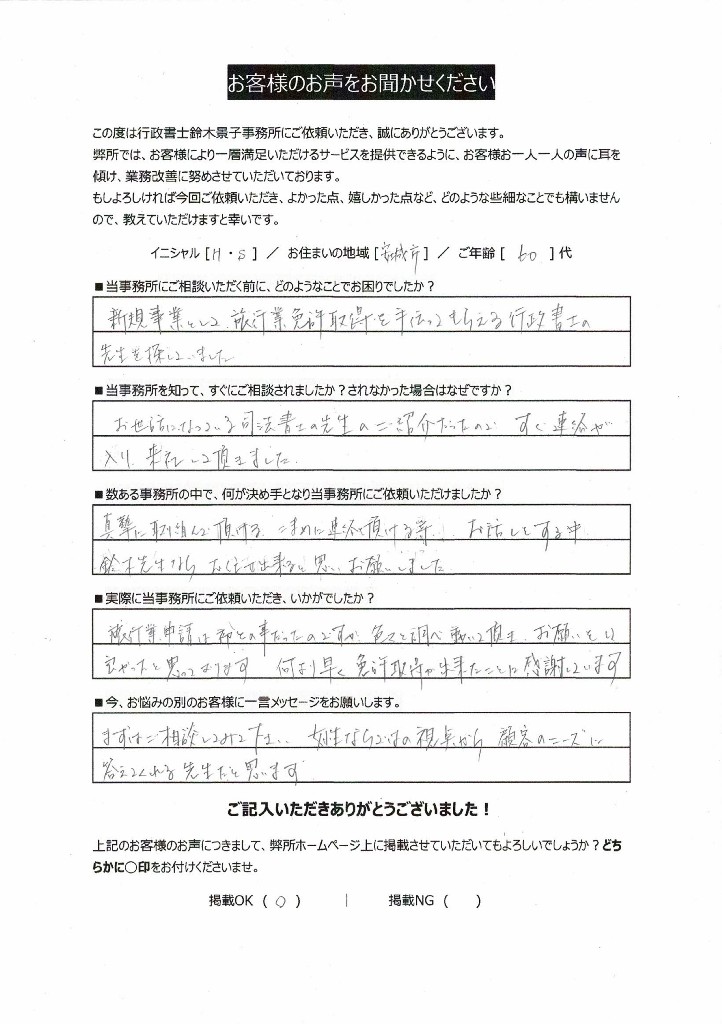 お客様のお声をお聞かせください
この度は行政書士鈴木景子事務所にご依頼いただき、誠にありがとうございます。
弊所では、お客様により一層満足いただけるサービスを提供できるように、お客様お一人一人の声に耳を
傾け、業務改善に努めさせていただいております。
もしよろしければ今回ご依頼いただき、よかった点、嬉しかった点など、どのような些細なことでも構いません
ので、教えていただけますと幸いです。
イニシャル [ H・S ] ／ お住まいの地域 [ 安城市 ] ／ ご年齢 [ 60 ] 代
■当事務所にご相談いただく前に、どのようなことでお困りでしたか？
新規事業として、旅行業免許取得を手伝ってもらえる行政書士の
先生を探していました
■当事務所を知って、すぐにご相談されましたか？されなかった場合はなぜですか？
お世話になっている司法書士の先生のご紹介だったので すぐ連絡が
入り、来社して頂きました.
■数ある事務所の中で、何が決め手となり当事務所にご依頼いただけましたか？
真摯に取り組んで頂ける、こまめに連絡頂ける等、お話しをする中
鈴木先生なら お任せ出来ると思い、お願いしました
■実際に当事務所にご依頼いただき、いかがでしたか？
旅行業申請は初の事だったのですが 色々と調べ動いて頂き、お願いをして
良かったと思っております 何より早く免許取得が出来たことに感謝しています
■今、お悩みの別のお客様に一言メッセージをお願いします。
まずはご相談してみて下さい、女性ならではの視点から 顧客のニーズに
答えてくれる先生だと思います
ご記入いただきありがとうございました！
上記のお客様のお声につきまして、弊所ホームページ上に掲載させていただいてもよろしいでしょうか？どち
らかに〇印をお付けくださいませ。
掲載OK （ 〇 ） ｜ 掲載NG （ ）